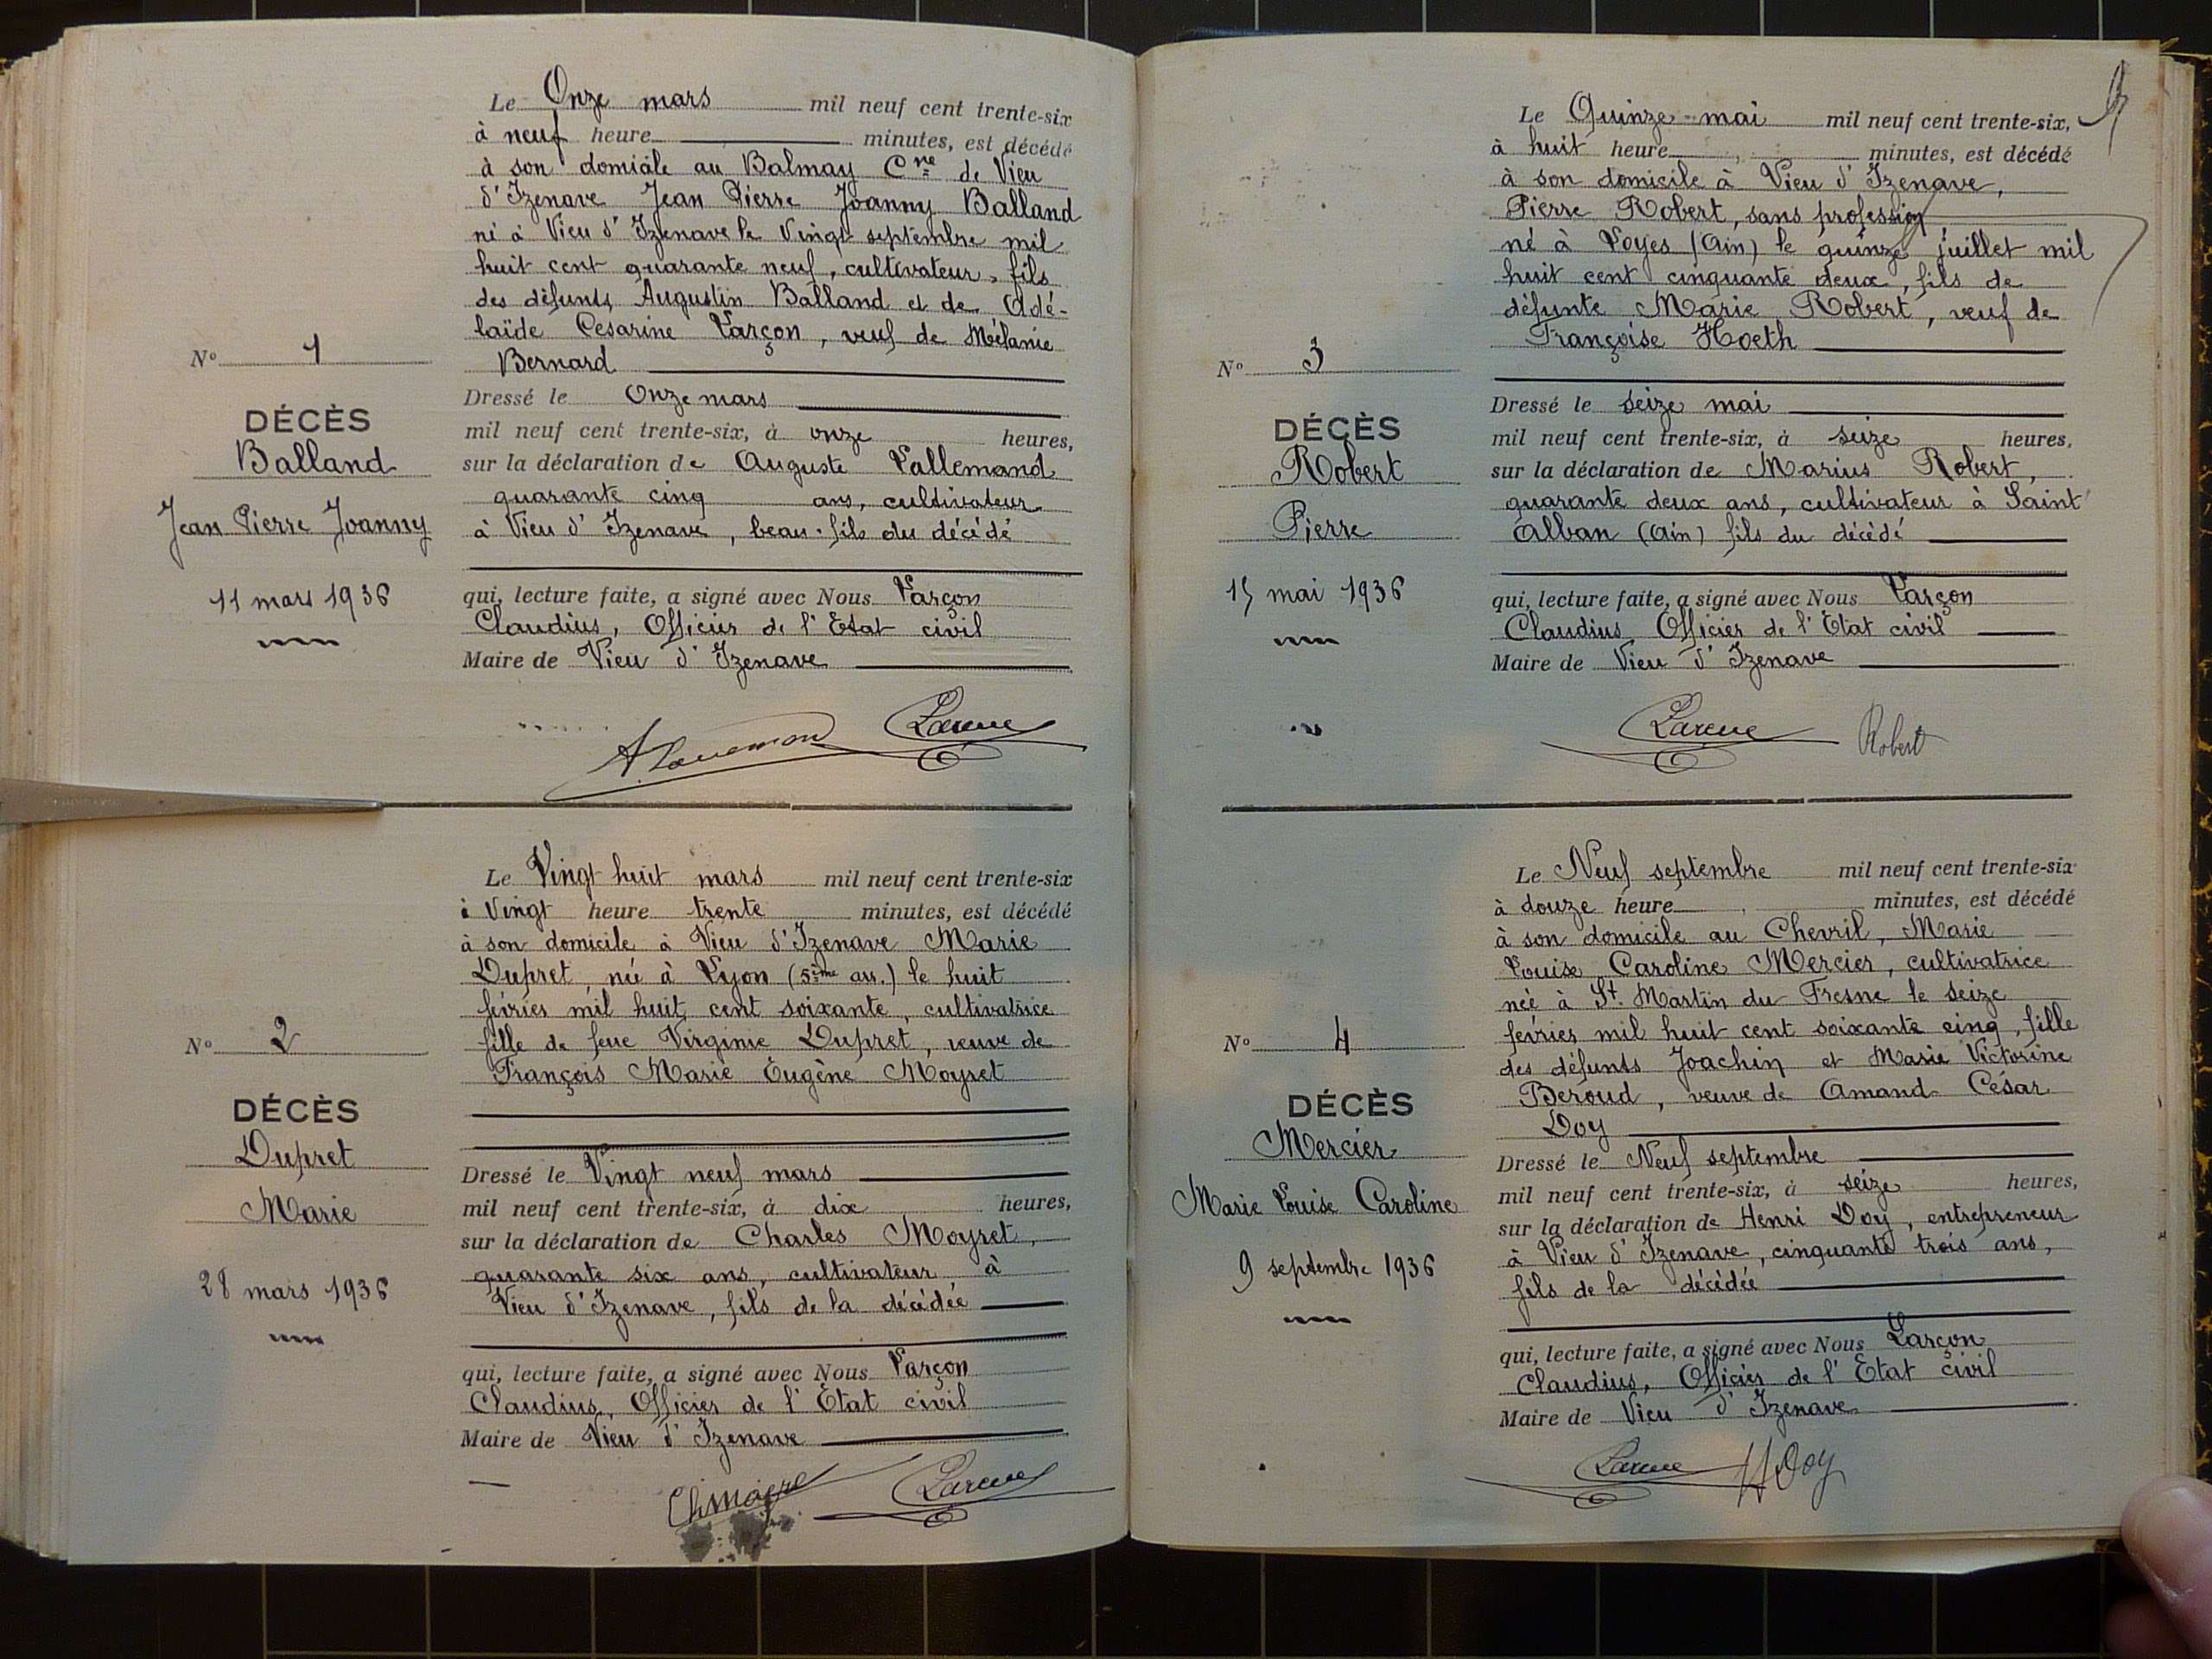 Le Onze mars mil neuf cent trente-six
à neuf heure minutes, est décédé
à son domicile au Balmay Cne de Vieu
d'Izenave Jean Pierre Joanny Balland
né à Vieu d'Izenave le Vingt septembre mil
huit cent quarante neuf, cultivateur, fils
des défunts Augustin Balland et de Adé-
laïde Cesarine Larçon, veuf de Mélanie
Bernard
Nº 1
DÉCÈS
Balland
Jean Pierre Joanny
11 mars 1936
Dressé le Onze mars
mil neuf cent trente-six, à onze heures,
sur la déclaration de Auguste Lallemand
quarante cinq ans, cultivateur
à Vieu d'Izenave, beau-fils du décédé
qui, lecture faite, a signé avec Nous Larçon
Claudius, Officier de l'Etat civil
Maire de Vieu d'Izenave
Le Vingt huit mars mil neuf cent trente-six
à Vingt heure trente minutes, est décédé
à son domicile à Vieu d'Izenave Marie
Dupret, née à Lyon (5ème arr.) le huit
février mil huit cent soixante, cultivatrice
fille de feue Virginie Dupret, veuve de
François Marie Eugène Moyret
Nº 2
DÉCÈS
Dupret
Marie
28 mars 1936
Dressé le Vingt neuf mars
mil neuf cent trente-six, à dix heures,
sur la déclaration de Charles Moyret,
quarante six ans, cultivateur à
Vieu d'Izenave, fils de la décédée
qui, lecture faite, a signé avec Nous Larçon
Claudius, Officier de l'État civil
Maire de Vieu d'Izenave
Le Quinze mai mil neuf cent trente-six,
à huit heure minutes, est décédé
à son domicile à Vieu d'Izenave,
Pierre Robert, sans profession
né à Loyes (Ain) le quinze juillet mil
huit cent cinquante deux, fils de
défunte Marie Robert, veuf de
Françoise Hoeth
Nº 3
DÉCÈS
Robert
Pierre
15 mai 1936
Dressé le seize mai
mil neuf cent trente-six, à seize heures,
sur la déclaration de Marius Robert,
quarante deux ans, cultivateur à Saint
Alban (Ain) fils du décédé
qui, lecture faite, a signé avec Nous Larçon
Claudius, Officier de l'Etat civil
Maire de Vieu d'Izenave
Robert
Le Neuf septembre mil neuf cent trente-six
à douze heure minutes, est décédé
à son domicile au Chevril, Marie
Louise Caroline Mercier, cultivatrice
née à St. Martin du Fresne le seize
février mil huit cent soixante cinq, fille
des défunts Joachin et Marie Victorine
Beroud, veuve de Amand César
Doy
Nº 4
DÉCÈS
Mercier
Marie Louise Caroline
9 septembre 1936
Dressé le Neuf septembre
mil neuf cent trente-six, à seize heures,
sur la déclaration de Henri Doy, entrepreneur
à Vieu d'Izenave, cinquante trois ans,
fils de la décédée
qui, lecture faite, a signé avec Nous Larçon
Claudius, Officier de l'Etat civil
Maire de Vieu d'Izenave
H Doy